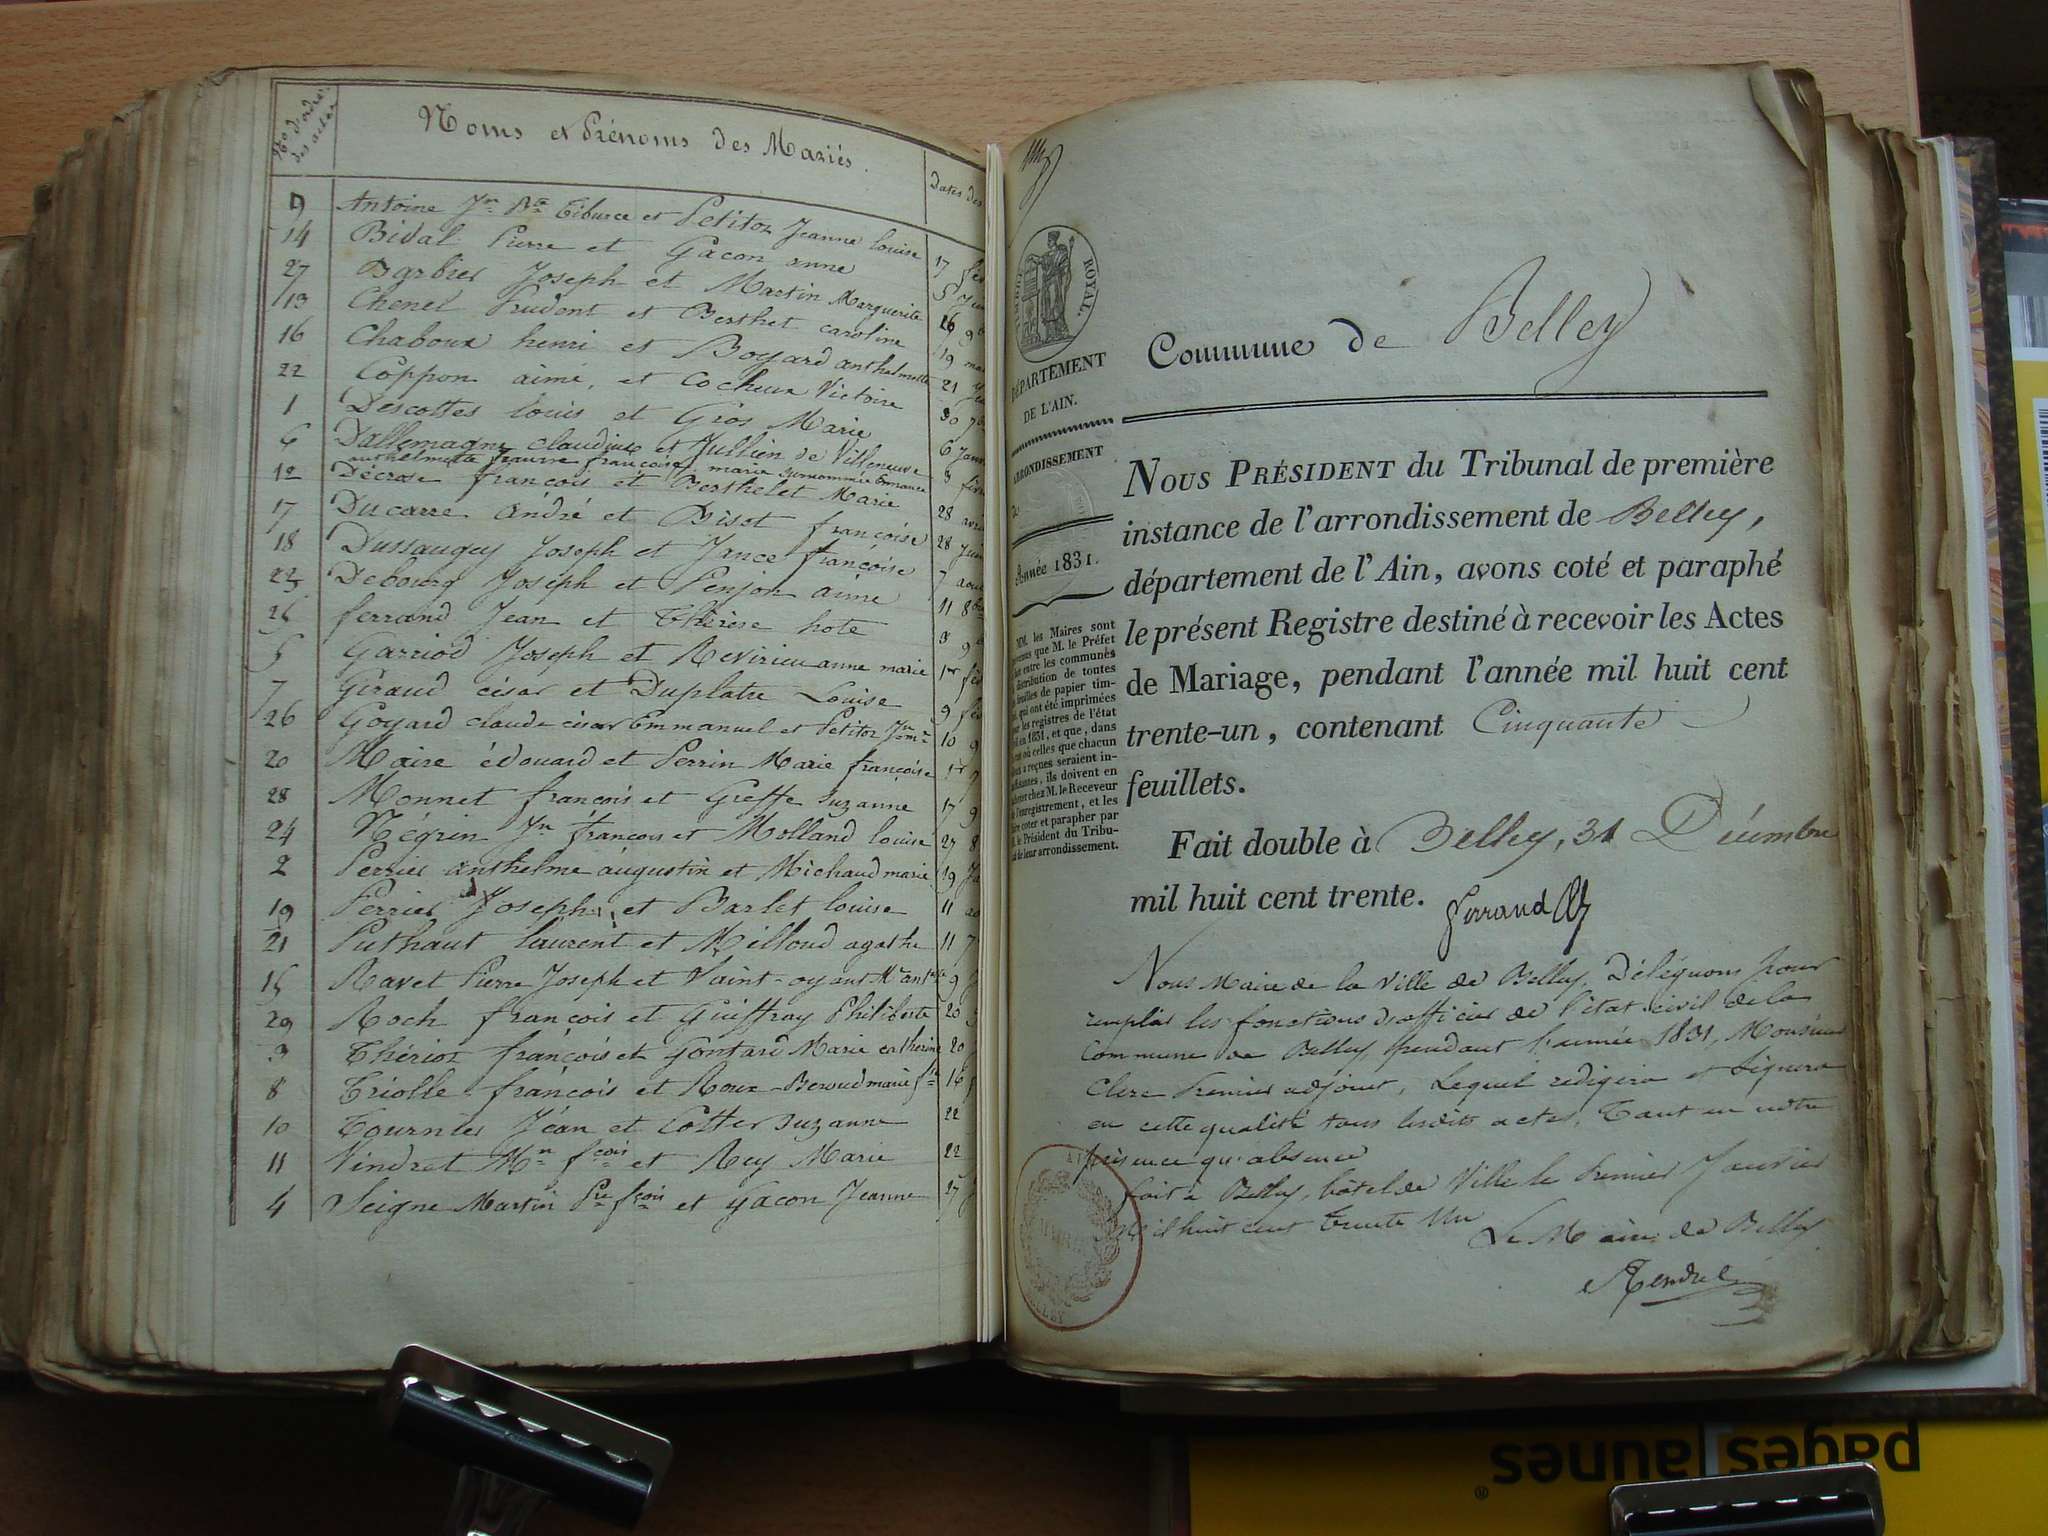 Nos d'ordre des actes
Noms et Prénoms des Mariés.
Dates des
9 Antoine Jn Bte Tiburce et Petitor Jeanne louise 17 fév
14 Bidal Pierre et Gacon anne 5
27 Barbier Joseph et Martin Marguerite 26 9b
13 Chenel Prudent et Berthet caroline 19 mai
16 Chaboux henri et Boyard anthelmette 21
22 Coppon aimé, et Cocheux Victoire 30 7b
1 Descottes louis et Gros Marie 6 Janv
6 Dallemagne claudine et Jullien de Villeneuve
anthelmette françoise marie surnommée 3 févr
12 Décrose françois et Berthelet Marie 28 avri
17 Ducarre André et Bisot françoise 28 Juin
18 Dussauguy Joseph et Jance françoise 7 aout
23 Debourg Joseph et Penjon aimé 11 8b
25 ferrand Jean et Thérèse hote 8 9
5 Garriod Joseph et Revirieu anne marie 1er fév
7 Giraud césar et Duplatre Louise 9 fév
26 Goyard claude césar Emmanuel et Petitor 10 9
20 Maire édouard et Perrin Marie françoise 1r 7
28 Monnet françois et Greffe Suzanne 17 9
24 Négrin Jn françois et Molland louise 27 8
2 Perrier anthelme augustin et Michaud marie 19 Ja
19 Perrier Joseph et Barlet louise 11 ao
21 Puthaut laurent et Milloud agathe 11 7
15 Ravet Pierre Joseph et Vaint-oyant 9
29 Roch françois et Guiffray Philiberte 20
3 Thérior françois et Gontard Marie catherine 20
8 Triolle françois et Roux-Beroud marie fse 16 f
10 Tournier Jéan et Cotter Suzanne 22
11 Vindret Mn fçois et Rey Marie 22
4 Seigne Martin Pre fçois et Gacon Jeanne 27
TIMBRE ROYAL.
DÉPARTEMENT
DE L'AIN.
ARRONDISSEMENT
Année 1831.
MM. les Maires sont
prévenus que M. le Préfet
fait entre les communes
distribution de toutes
feuilles de papier tim-
qui ont été imprimées
pour les registres de l'état
en 1831, et que, dans
cas où celles que chacun
a reçues seraient in-
suffisantes, ils doivent en
acheter chez M. le Receveur
de l'enregistrement, et les
faire coter et parapher par
M. le Président du Tribu-
nal de leur arrondissement.
Commune de Belley
NOUS PRÉSIDENT du Tribunal de première
instance de l'arrondissement de Belley,
département de l'Ain, avons coté et paraphé
le présent Registre destiné à recevoir les Actes
de Mariage, pendant l'année mil huit cent
trente-un, contenant Cinquante
feuillets.
Fait double à Belley, 31 Décembre
mil huit cent trente.
Ferrand
Nous Maire de la Ville de Belley, Déléguons pour
remplir les fonctions d'officier de l'état civil de la
Commune de Belley, pendant l'année 1831, Monsieur
Clerc Premier adjoint, Lequel redigera et Signera
en cette qualité tous lesdits actes, Tant en notre
présence qu'absence
fait à Belley, hôtel de Ville le Premier Janvier
Mil huit cent Trente Un
Le Maire de Belley
pages jaunes®